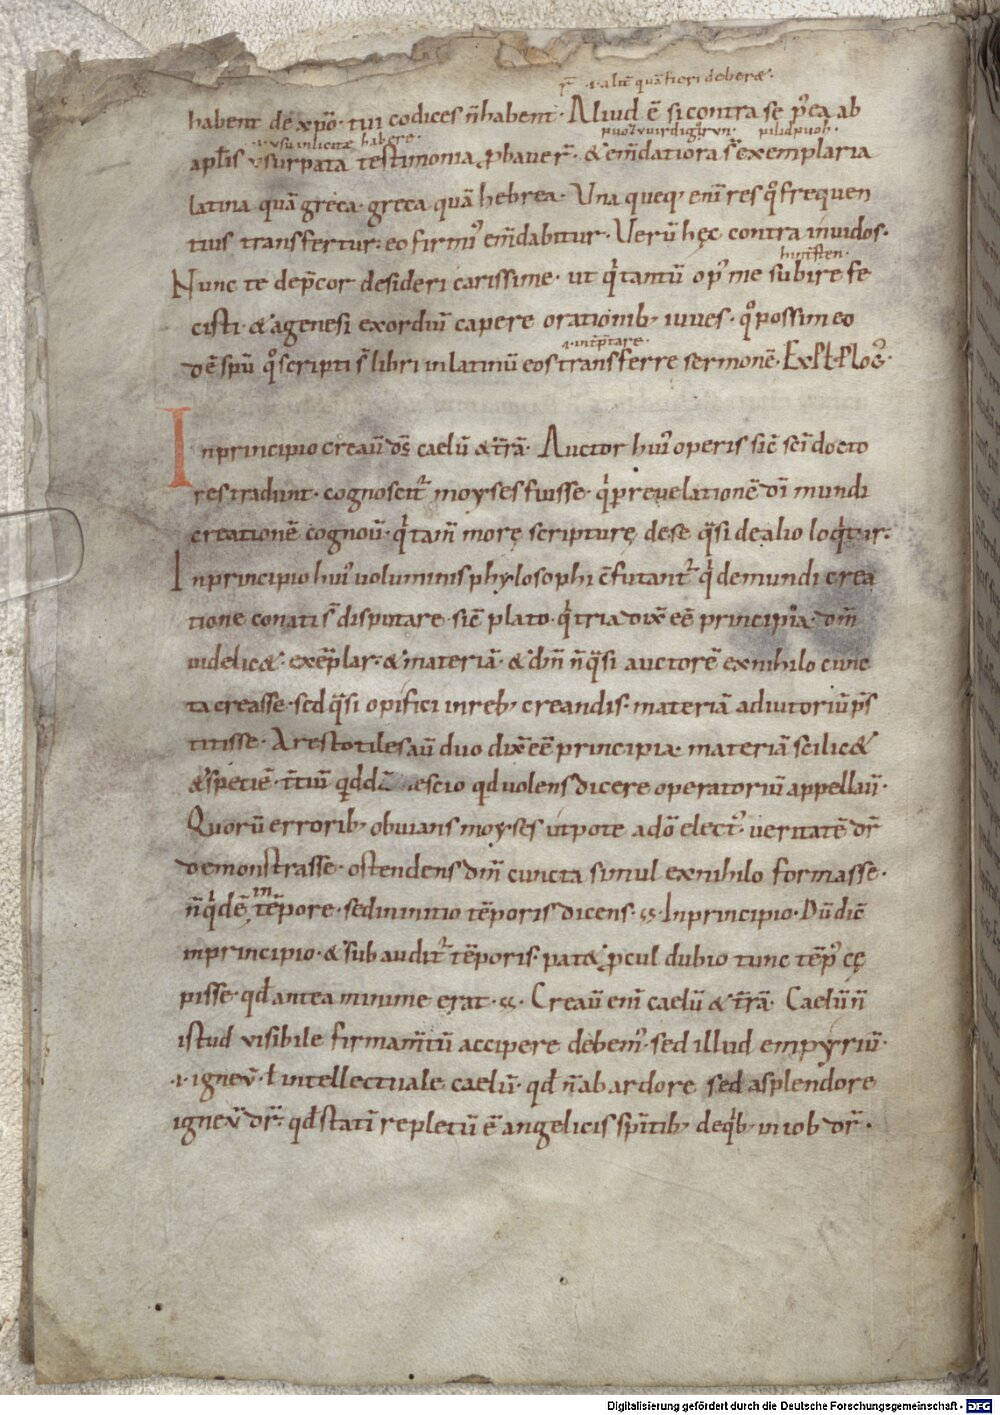 r̄ .i. alit̄ quā fieri deber&.
habent de xp̄o. tui codices n̄ habent. Aliud ē si contra se p̄ea ab
.i. usu inlicitæ habere. puoluuirdigürun. pilidpuoh.
apl̄is usurpata testimonia ꝓbauer̄. & em̄datiora s̄ exemplaria
latina quā gręca. greca quā hebrea. Una queq; enī res qͦ frequen
tius transfertur. eo firmiꝰ em̄dabitur. Uerū hęc contra inuidos.
Nunc te dep̄cor desideri carissime. ut qͥ tantū opꝰ me subire fe
cisti. & a genesi exordiū capere orationib; iuues. qͦ possim eo
.i. inṫp̄tare.
dē sp̄u qͦ scripti s̄ libri in latinū eos transferre sermonē. Expl̄ Pl̄og̃.
In principio creauī ds̄ caelū & t̄rā. Auctor huiꝰ operis sic̄ sc̄i docto
res tradunt. cognoscit᷑ moyses fuisse. qͥ p reuelationē dī mundi
creationē cognouī. qͥ tam̄ morę scripturę de se q̄si de alio loqͥtur.
In principio huiꝰ uoluminis phylosophi c̄futant᷑ qͥ de mundi crea
tione conati s̄ disputare. sic̄ plato. qͥ tria dix̄ eē principia. dm̄
uidelic&. exēplar. & materiā. & dm̄ n̄ q̄si auctorē ex nihilo cunc
ta creasse. sed q̄si opifici in reb; creandis. materiā adiutoriū p̄s
titisse. Arestotiles aū duo dix̄ eē principia. materiā scilic&
& spetiē. t̄tiū qddā nescio qd uolens dicere operatoriū appellauī.
Quorū errorib; obuians moyses utpote a dō electꝰ. ueritatē dr̄
demonstrasse. ostendens dm̄ cuncta simul ex nihilo formasse.
in
n̄ qͥdē tēpore. sed in initio tēporis dicens. In principio. Dū dic̄
in principio. & subaudit᷑ tēporis. pat& ꝓcul dubio tunc tēpꝰ cę
pisse. qđ antea minime erat. Creauī enī caelū & t̄rā. Caelū n̄
istud uisibile firmam̄tū accipere debemꝰ. sed illud empyriū.
.i. igneū. ł intellectuale caelū. qđ n̄ ab ardore sed a splendore
igneū dr̄. qđ statī repletū ē angelicis sp̄itib; de qͥb; in iob dr̄.